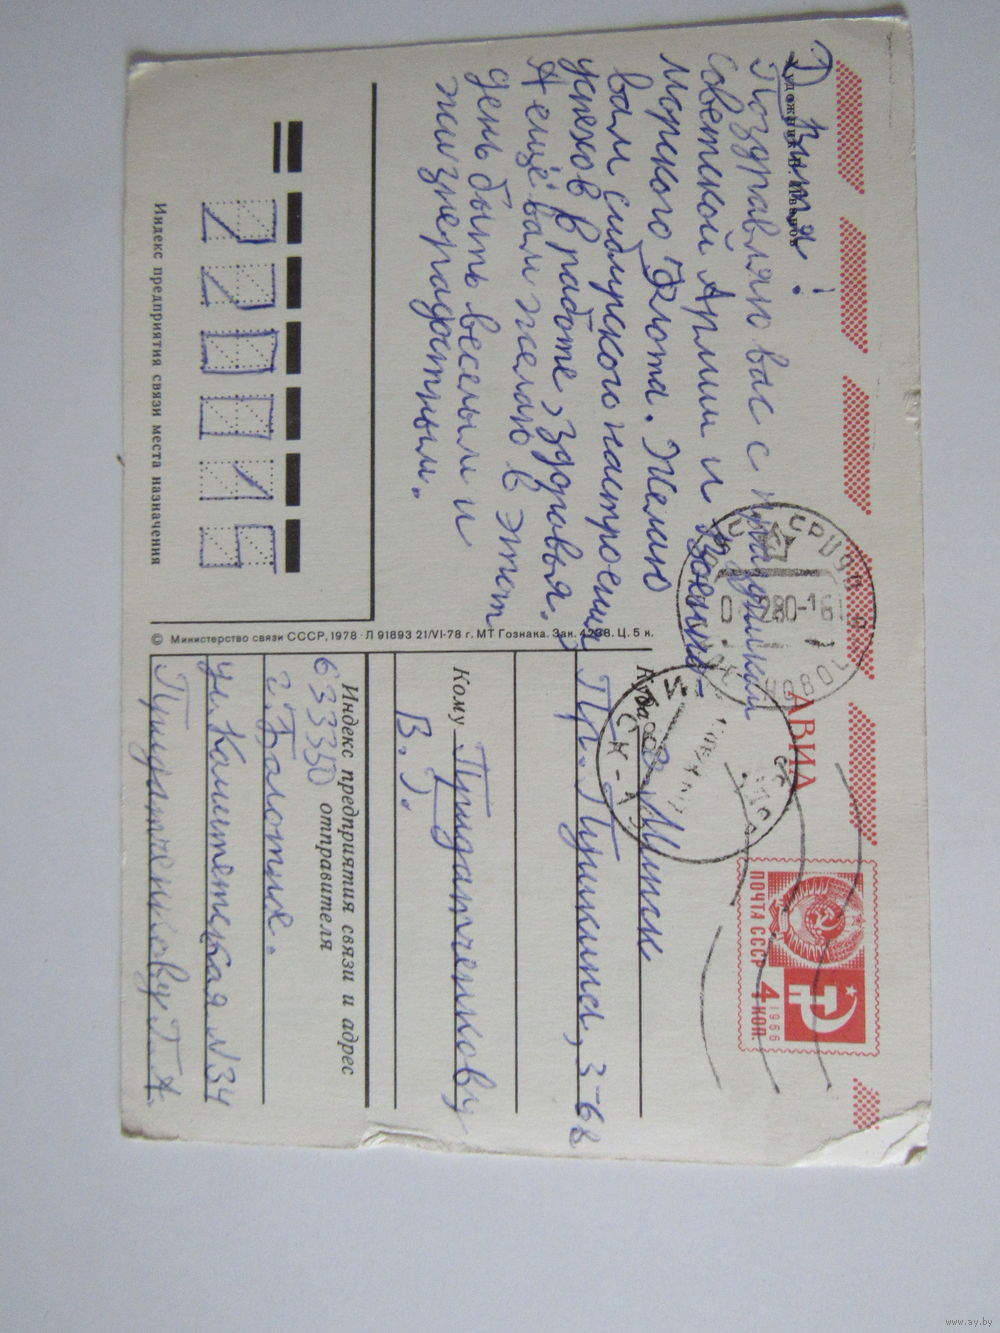 Художник В. Иванов
Д. Витя!
Поздравляю вас с праздником
Советской Армии и Военно-
Морского Флота. Желаю
вам сибирского настроения,
успехов в работе, здоровья.
А ещё вам желаю в этот
день быть веселым и
жизнерадостным.
220045
Индекс предприятия связи места назначения
© Министерство связи СССР, 1978 Л 91893 21/VI-78 г. МТ Гознака. Зак. 4238. Ц. 5 к.
АВИА
ПОЧТА СССР 4 КОП.
1966
Куда г. Минск
Пр. Пушкина, 3-68
Кому Придатченкову
В. Г.
Индекс предприятия связи и адрес
отправителя
633350
г. Болотное.
Придатченкову Г. А.